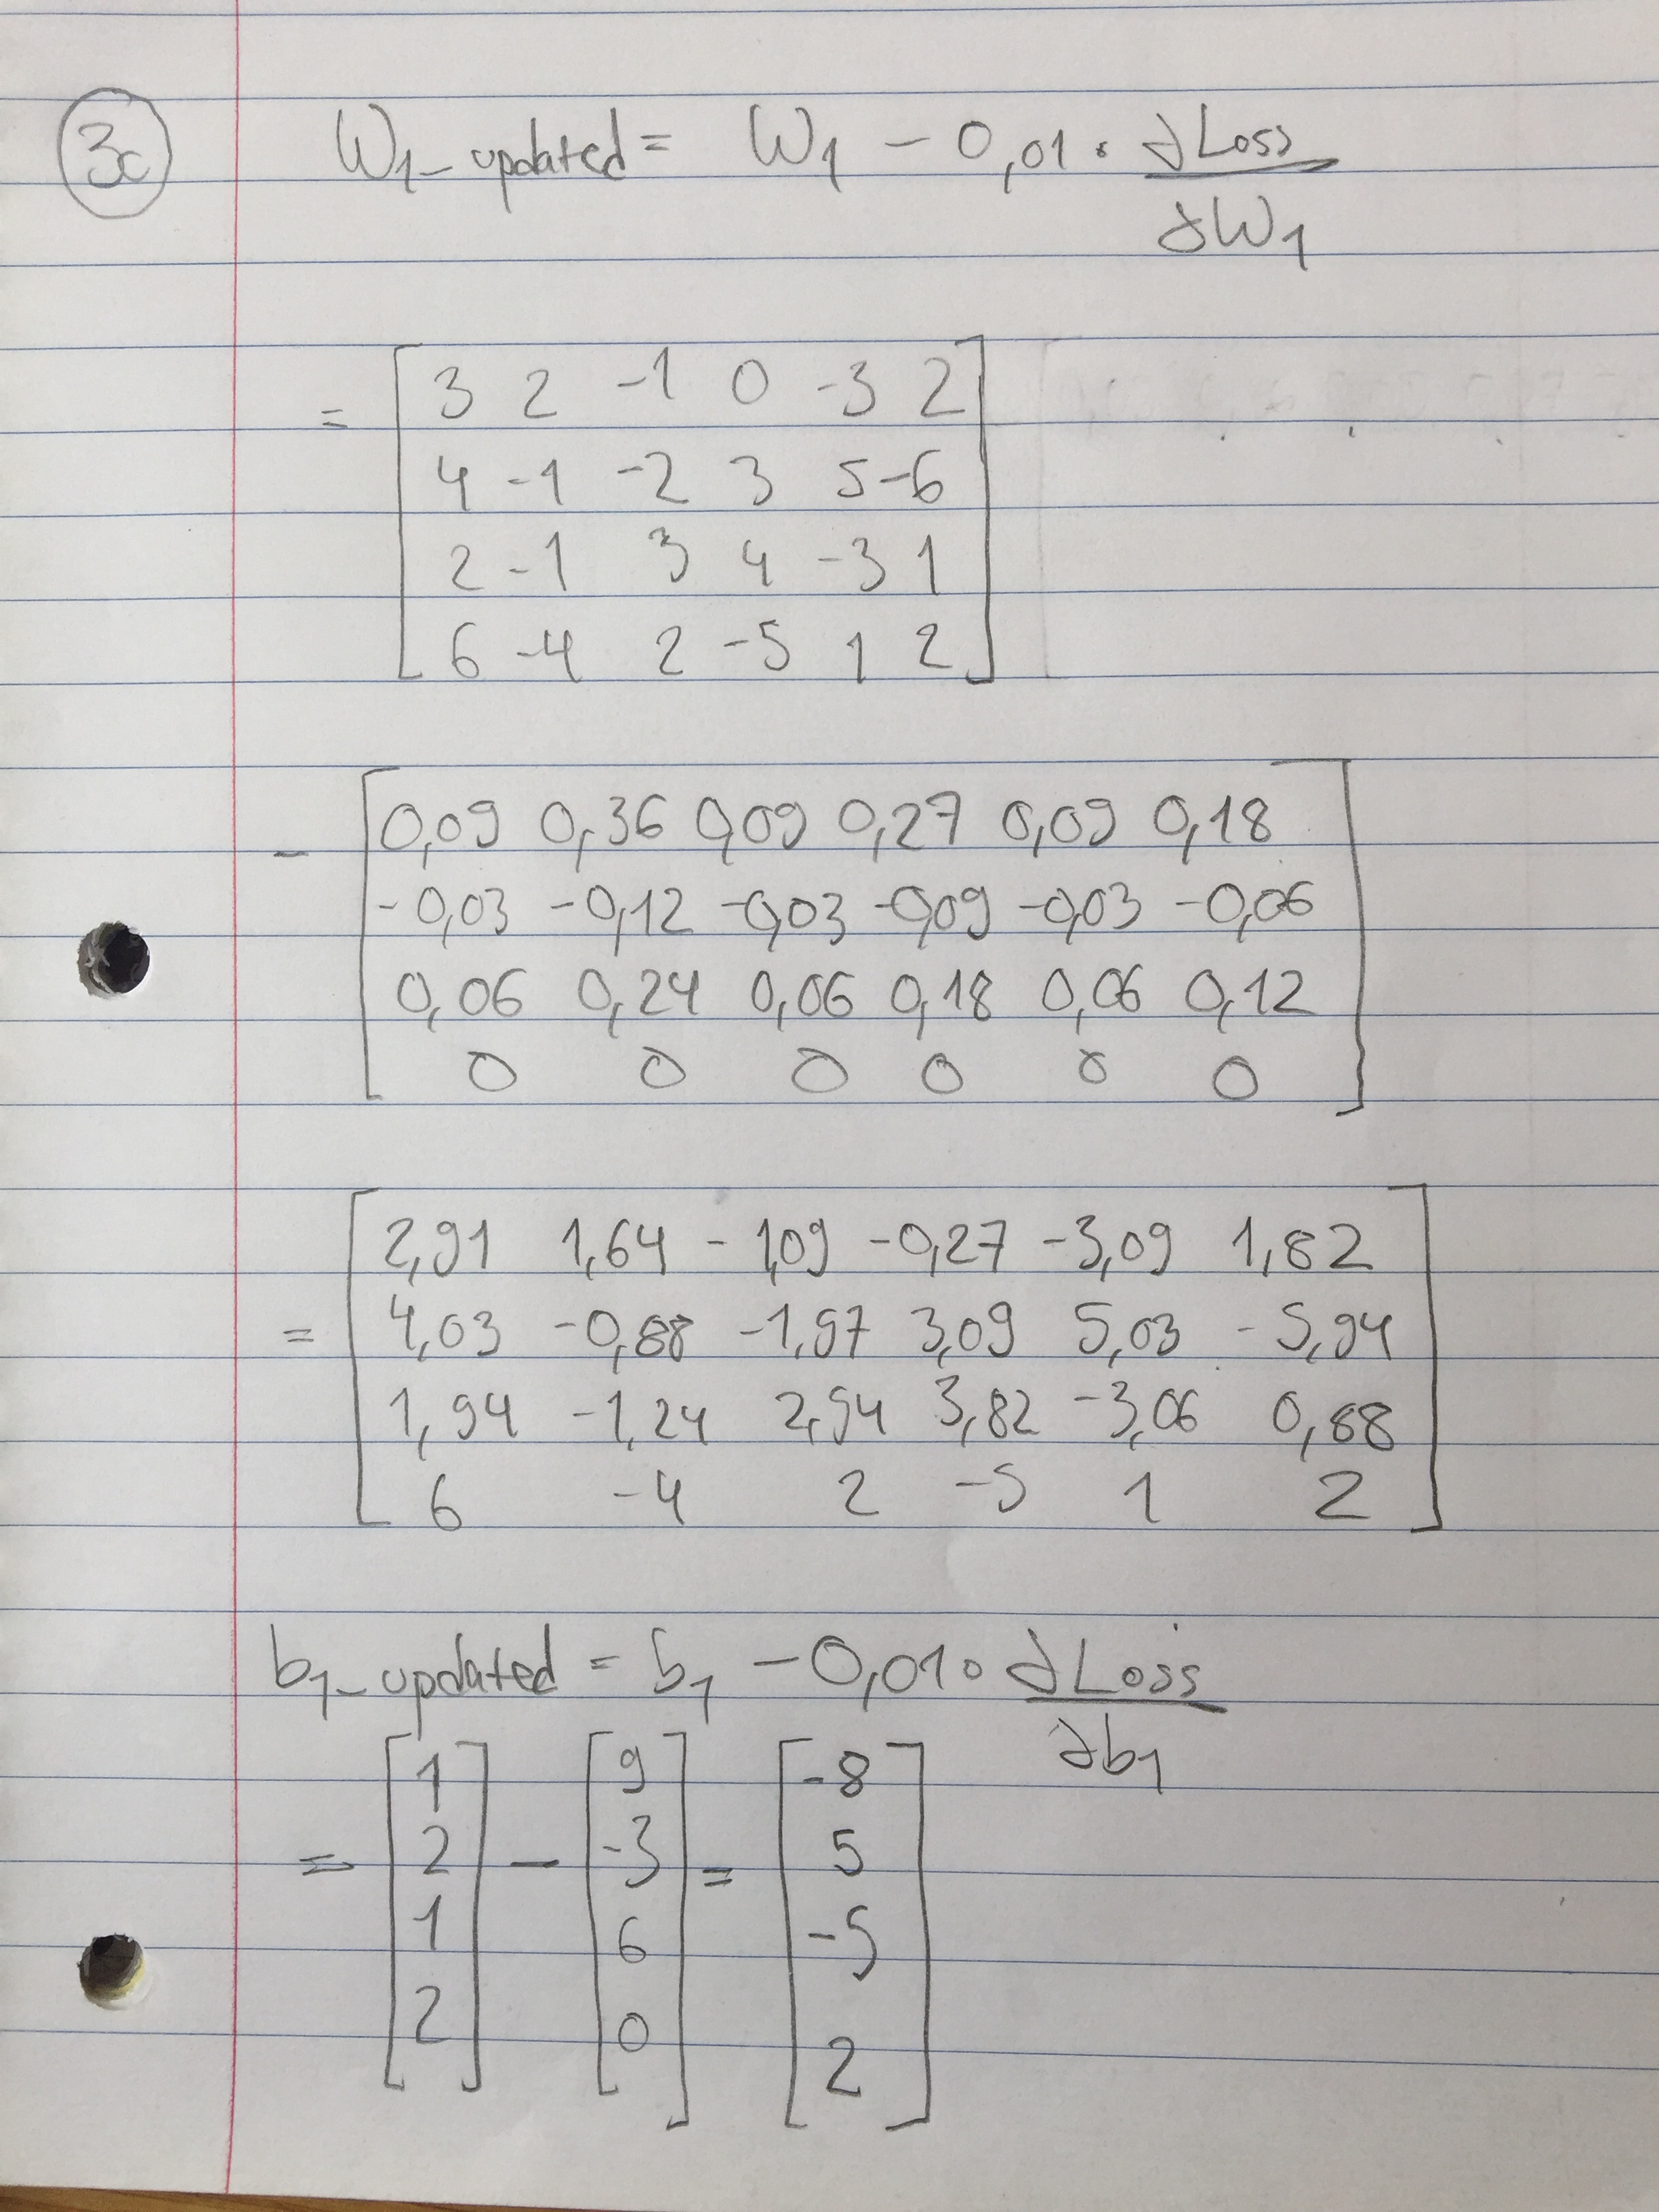 3c
W1_updated = W1 − 0,01 • ∂Loss
∂W1
= [ 3 2 -1 0 -3 2 ]
4 -1 -2 3 5 -6
2 -1 3 4 -3 1
6 -4 2 -5 1 2
− [ 0,09 0,36 0,09 0,27 0,09 0,18 ]
-0,03 -0,12 -0,03 -0,09 -0,03 -0,06
0,06 0,24 0,06 0,18 0,06 0,12
0 0 0 0 0 0
= [ 2,91 1,64 -1,09 -0,27 -3,09 1,82 ]
4,03 -0,88 -1,97 3,09 5,03 -5,94
1,94 -1,24 2,94 3,82 -3,06 0,88
6 -4 2 -5 1 2
b1_updated = b1 − 0,01 • ∂Loss
∂b1
= [ 1 ] − [ 9 ] = [ -8 ]
2 -3 5
1 6 -5
2 0 2